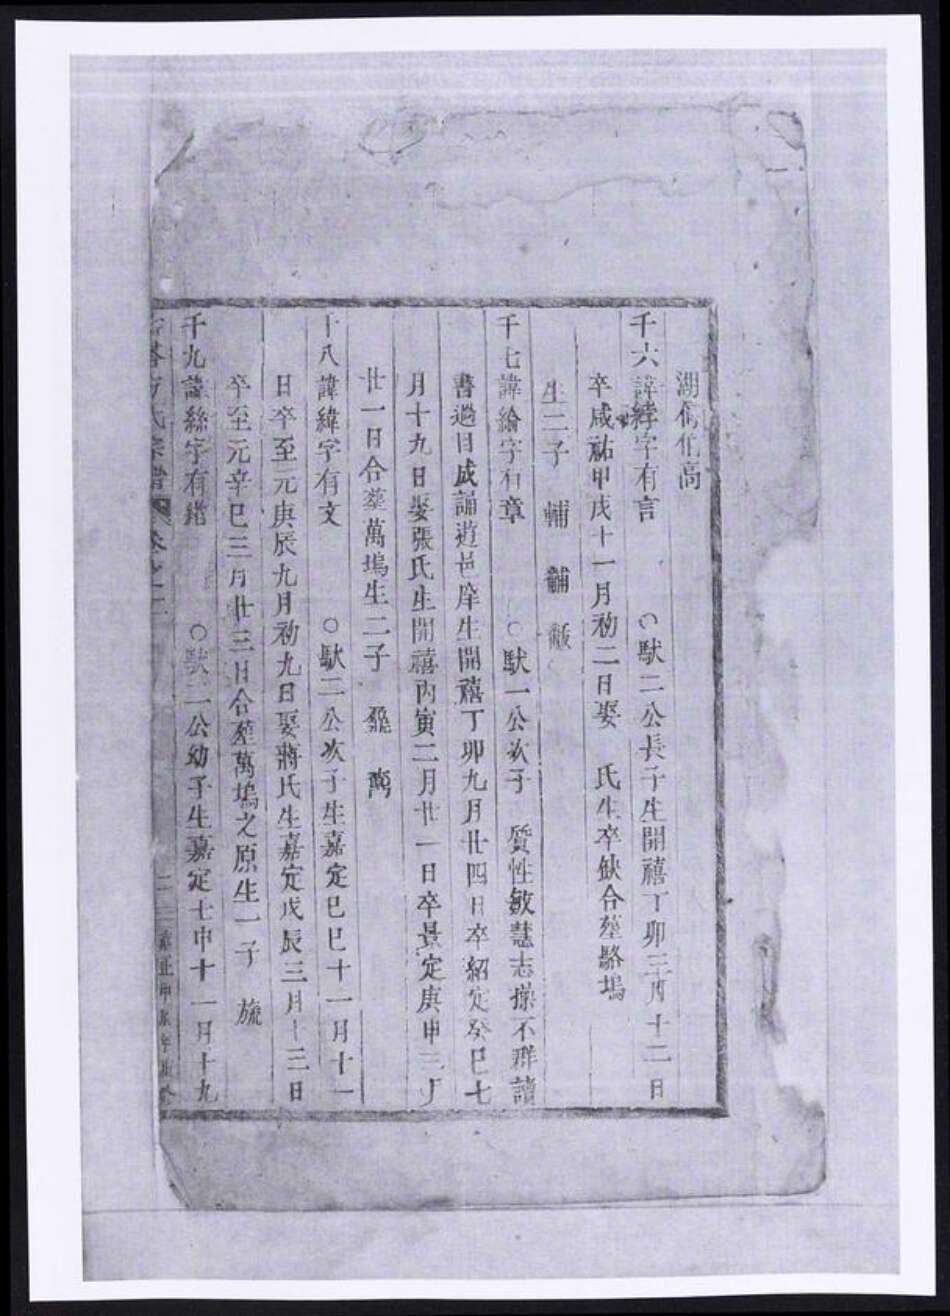 湖儁伯高
千六諱綍字有言　○馱二公長子生開禧丁卯三月十二日
卒咸祐甲戌十一月初二日娶　氏生卒缺合塟駱塢
生二子　輔　黼　黻
千七諱綸字有章　○馱一公次子　質性敏慧志操不群讀
書過目成誦遊邑庠生開禧丁卯九月廿四日卒紹定癸巳七
月十九日娶張氏生開禧丙寅二月廿一日卒景定庚申三月
廿一日合塟萬塢生二子
十八諱緯字有文　○馱二公次子生嘉定己巳十一月十一
日卒至元庚辰九月初九日娶蔣氏生嘉定戊辰三月十三日
卒至元辛巳三月廿三日合塟萬塢之原生一子　旒
千九諱絲字有緒　○馱二公幼子生嘉定七申十一月十九
方氏宗譜　卷之